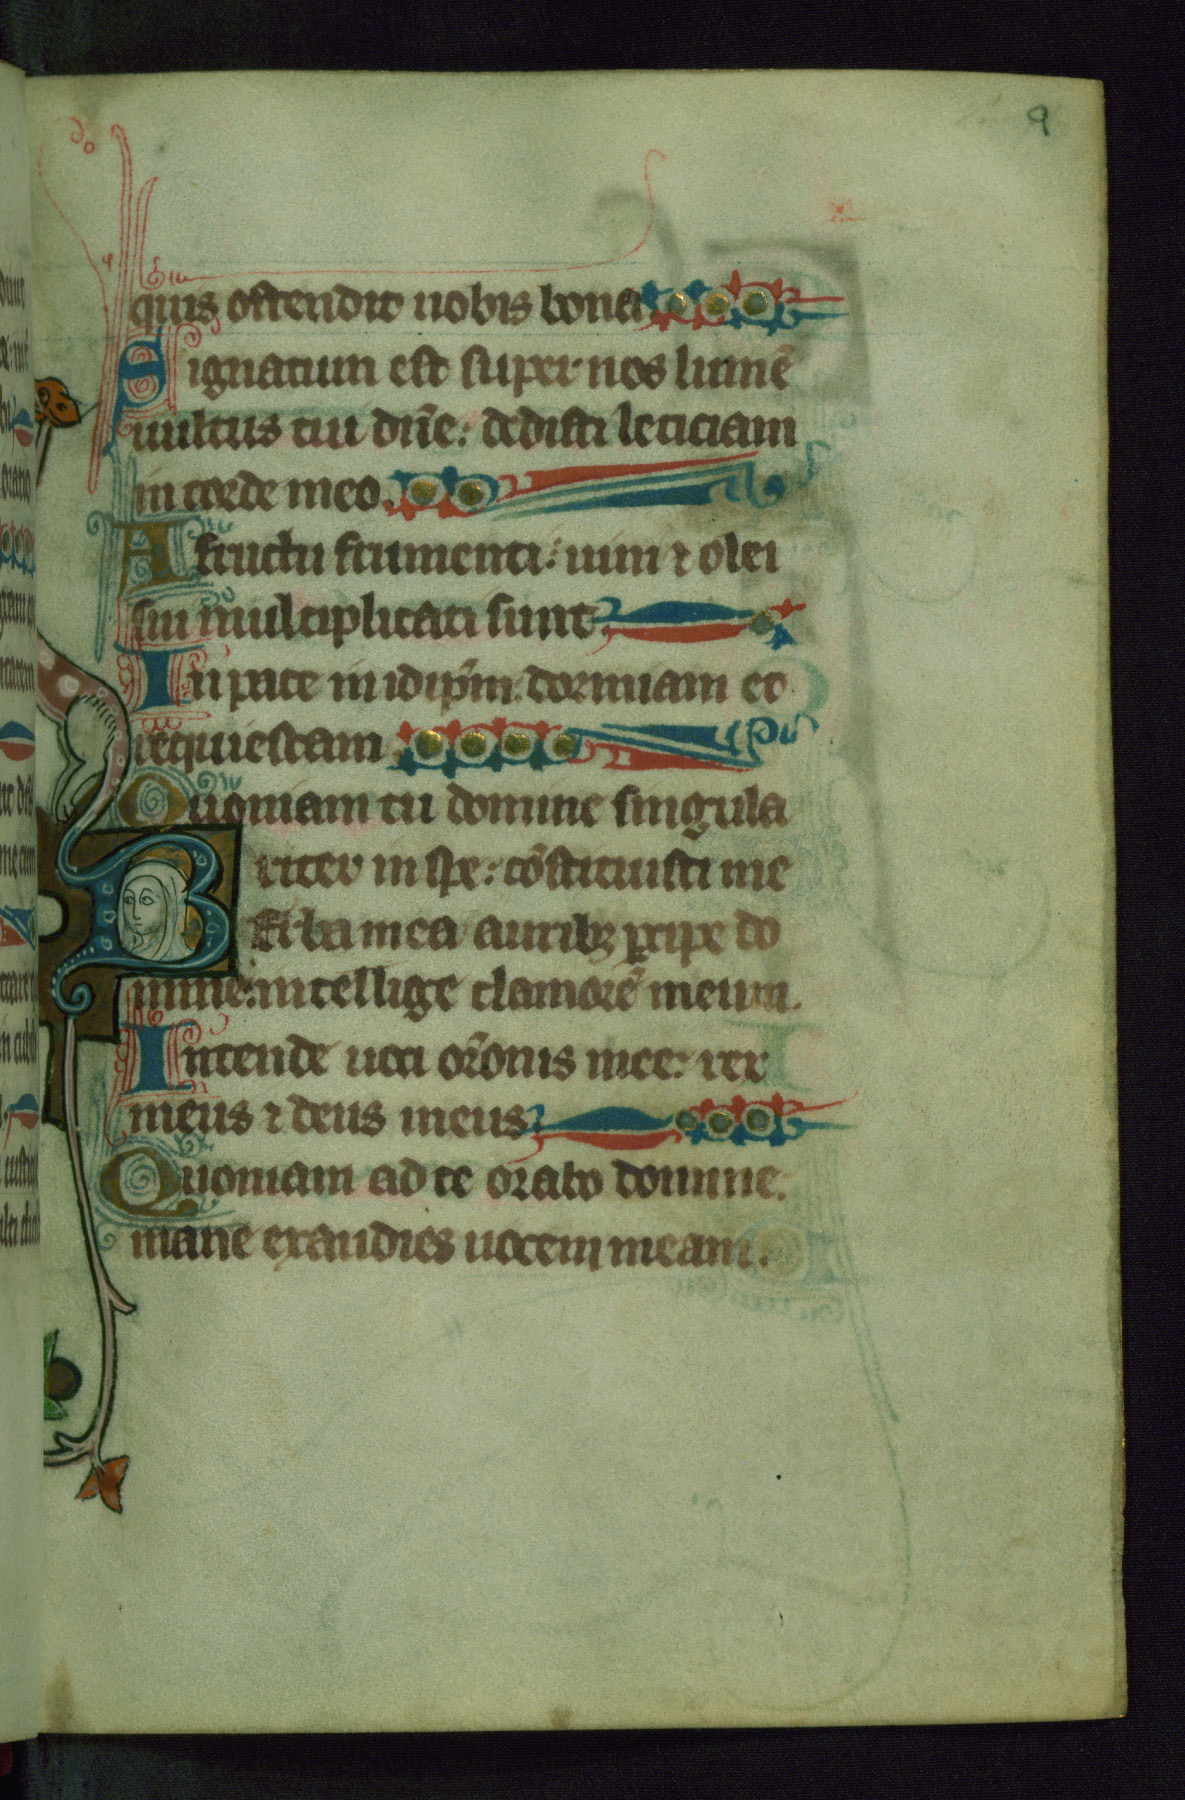 9
quis ostendit nobis bona
Signatum est super nos lumē
uultus tui dn̄e: dedisti leticiam
in corde meo.
A fructu frumenti: uini ⁊ olei
sui multiplicati sunt.
In pace in idip̄m dormiam et
requiescam
Quoniam tu domine singula
riter in spe: cōstituisti me
Verba mea auribꝫ ꝑcipe do
mine: intellige clamorē meum.
Intende uoci or̄onis mee: rex
meus ⁊ deus meus.
Quoniam ad te orabo domine:
mane exaudies uocem meam.